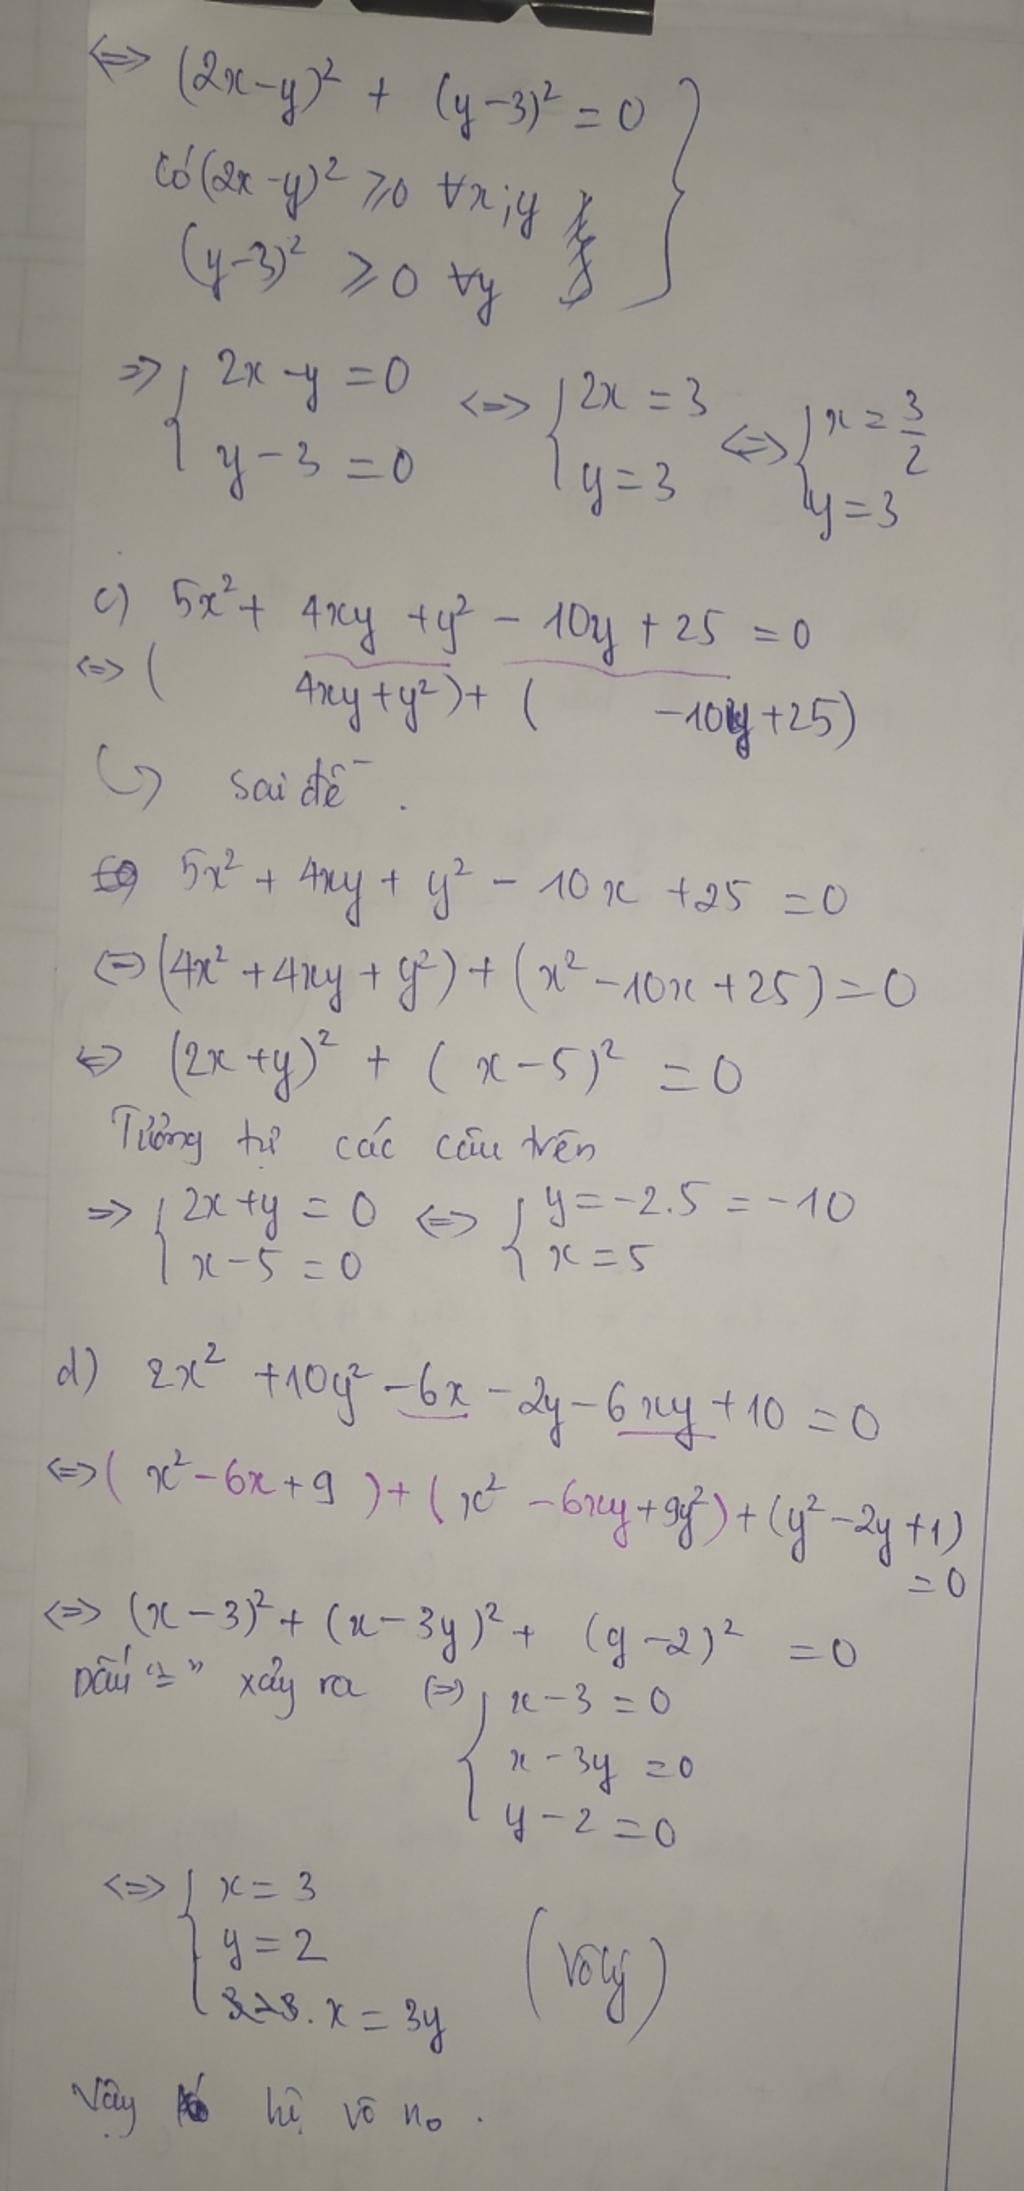 ⇔ (2x-y)² + (y-3)² = 0
Có (2x-y)² ⩾0 ∀x;y
(y-3)² ⩾ 0 ∀y
⇒ { 2x-y = 0 ⇔ { 2x = 3 ⇔ { x = 3/2
y-3 = 0 y = 3 y = 3
c) 5x² + 4xy + y² - 10y + 25 = 0
⇔ ( 4xy + y²) + ( -10y + 25)
↪ sai đề.
5x² + 4xy + y² - 10x + 25 = 0
⇔ (4x² + 4xy + y²) + (x² - 10x + 25) = 0
⇔ (2x + y)² + (x - 5)² = 0
Tương tự các câu trên
⇒ { 2x + y = 0 ⇔ { y = -2.5 = -10
x - 5 = 0 x = 5
d) 2x² + 10y² - 6x - 2y - 6xy + 10 = 0
⇔ ( x² - 6x + 9 ) + ( x² - 6xy + 9y²) + (y² - 2y + 1)
= 0
⇔ (x - 3)² + (x - 3y)² + (y - 2)² = 0
Dấu "=" xảy ra ⇔ { x - 3 = 0
x - 3y = 0
y - 2 = 0
⇔ { x = 3
y = 2 (vô lý)
x = 3y
Vậy hệ vô no.